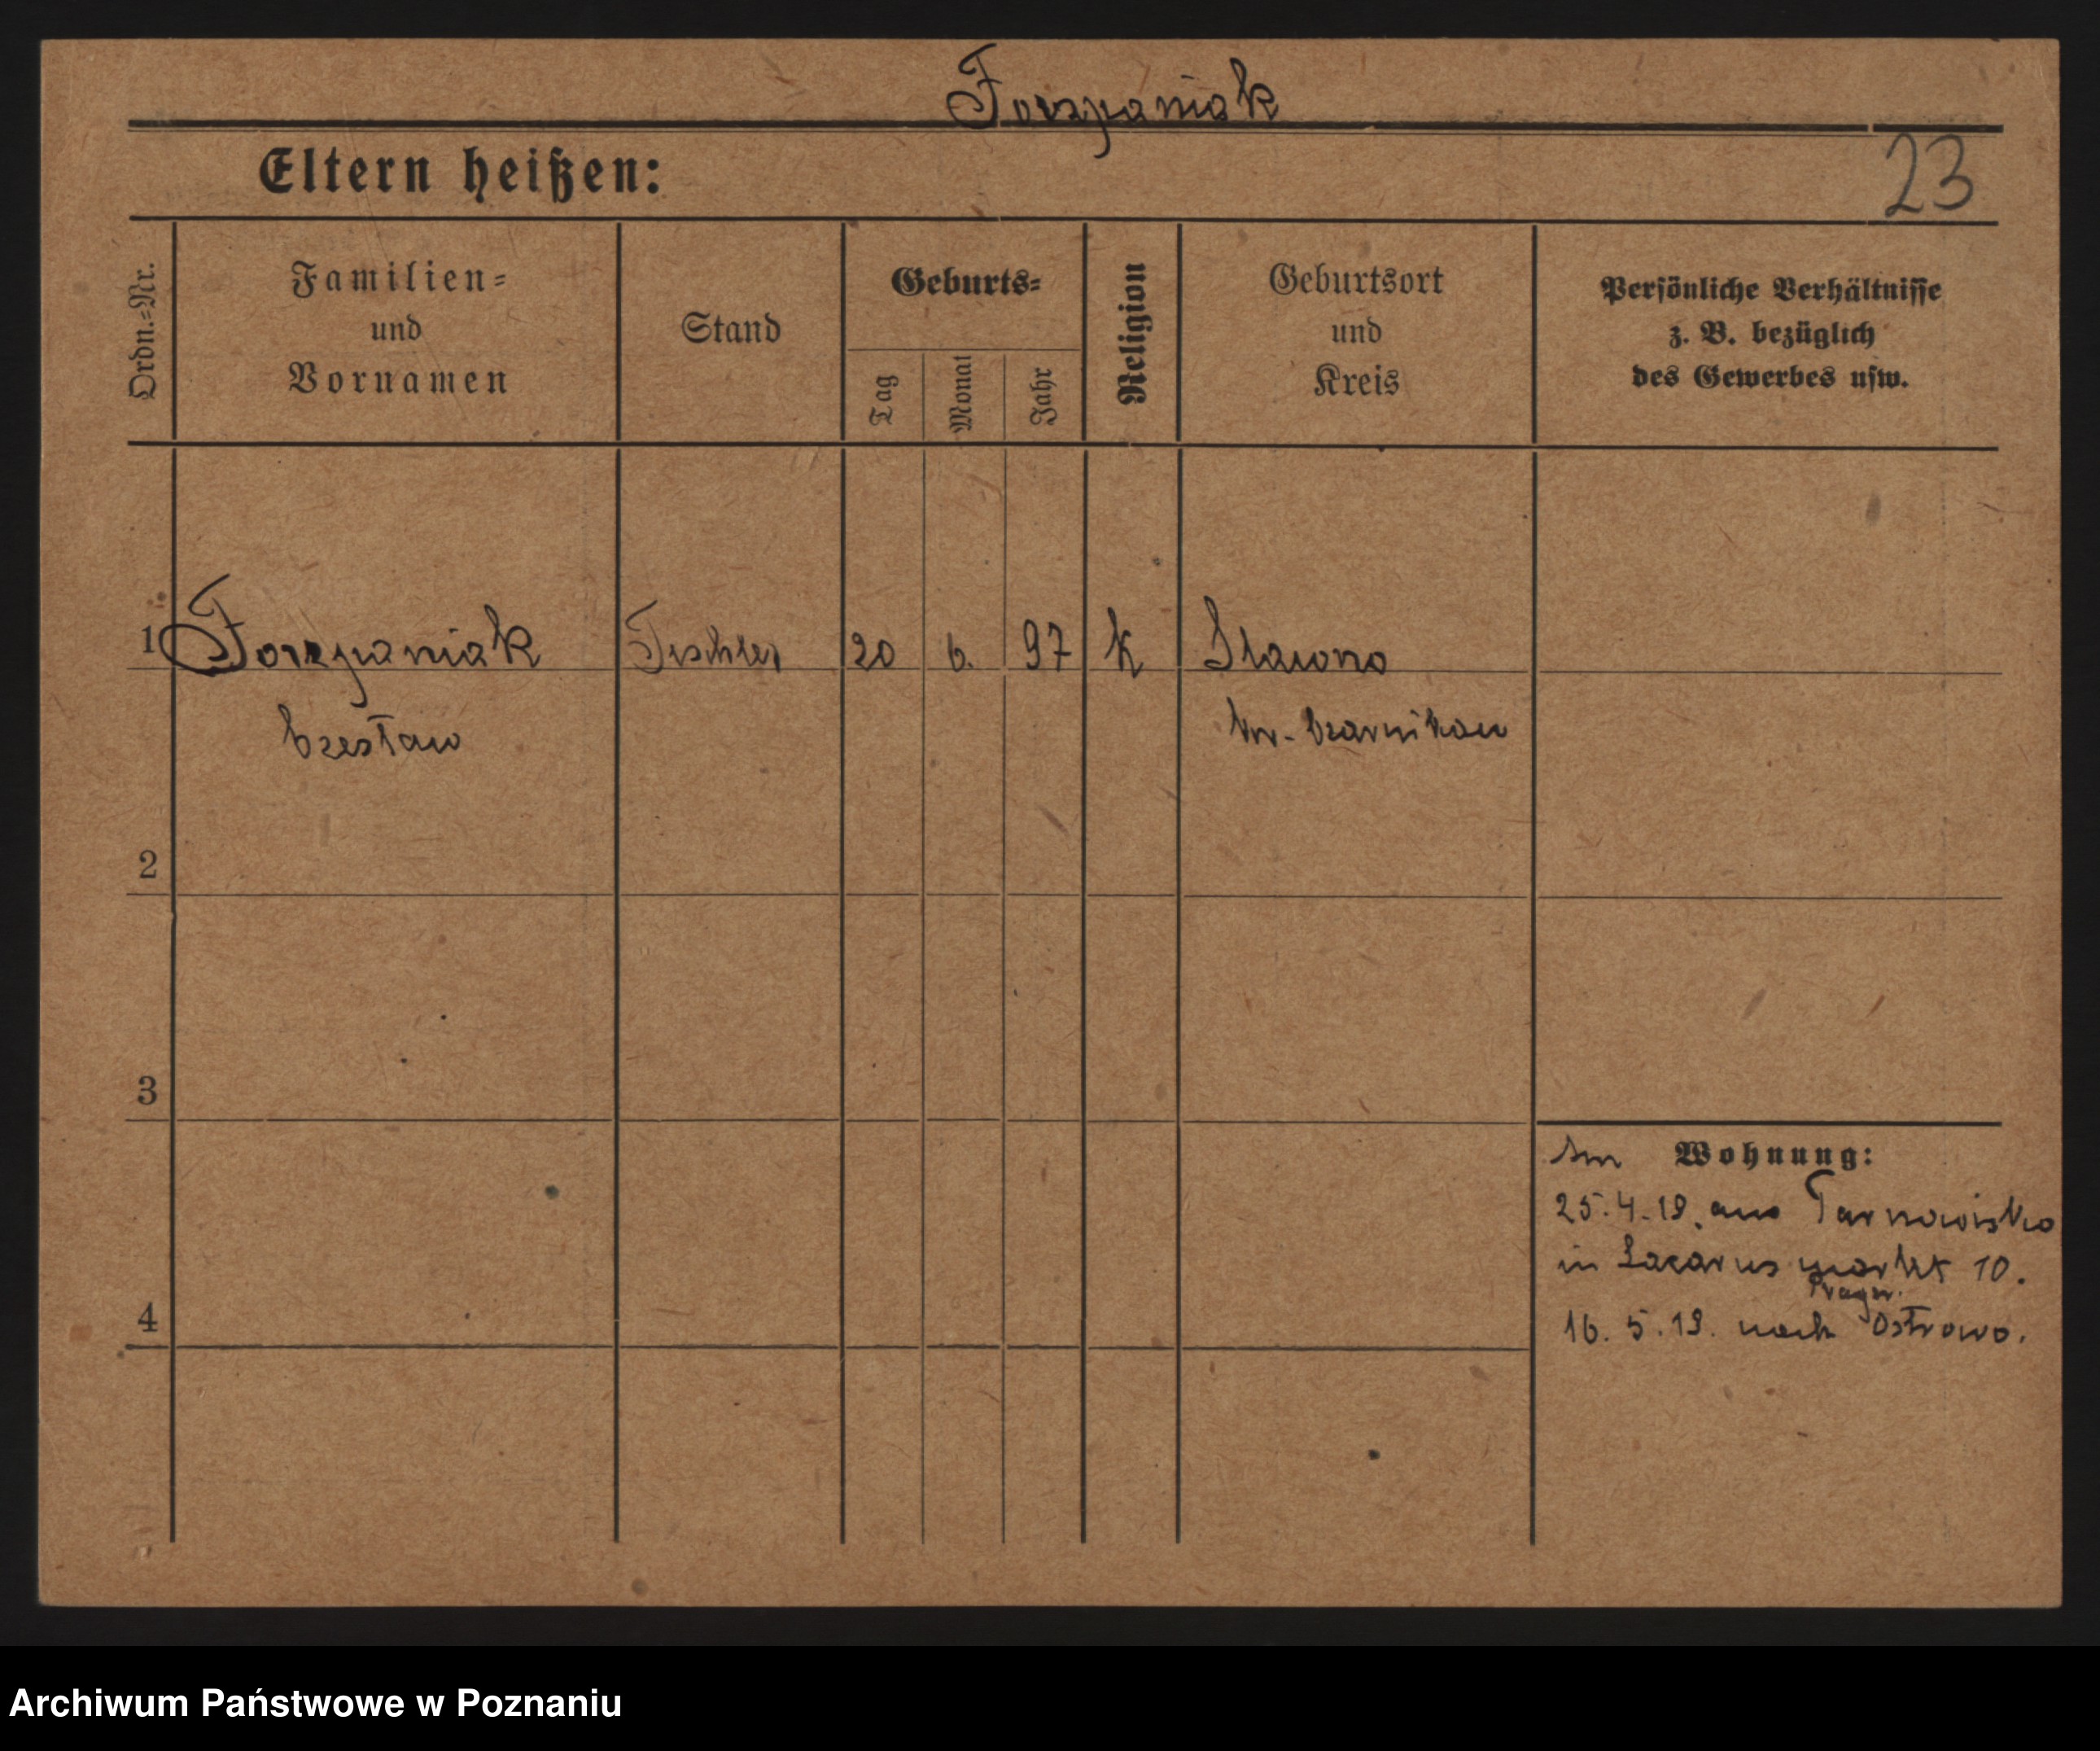 Forszpaniak
Eltern heißen:
23
Ordn.=Nr.
Familien=
und
Vornamen
Stand
Geburts=
Tag
Monat
Jahr
Religion
Geburtsort
und
Kreis
Persönliche Verhältnisse
z. B. bezüglich
des Gewerbes usw.
1 Tischler 20 6. 97 K Slawno
Czesław Kr. Czarnikau
2
3
4
Wohnung:
25.4.19. aus Tarnowisko
in Lazarusmarkt 10.
16.5.19. nach Ostrowo.
Archiwum Państwowe w Poznaniu